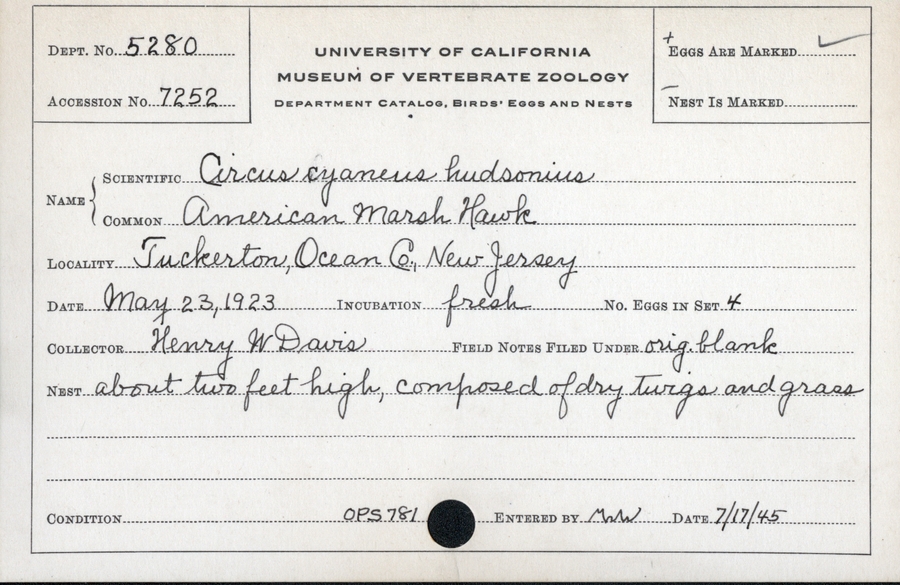 DEPT. NO. 5280
ACCESSION NO. 7252
UNIVERSITY OF CALIFORNIA
MUSEUM OF VERTEBRATE ZOOLOGY
DEPARTMENT CATALOG, BIRDS' EGGS AND NESTS
+ EGGS ARE MARKED ✓
– NEST IS MARKED
NAME { SCIENTIFIC Circus cyaneus hudsonius
COMMON American Marsh Hawk
LOCALITY Tuckerton, Ocean Co., New Jersey
DATE May 23, 1923 INCUBATION fresh NO. EGGS IN SET 4
COLLECTOR Henry W Davis FIELD NOTES FILED UNDER orig. blank
NEST about two feet high, composed of dry twigs and grass
CONDITION OPS 781 ENTERED BY DATE 7/17/45